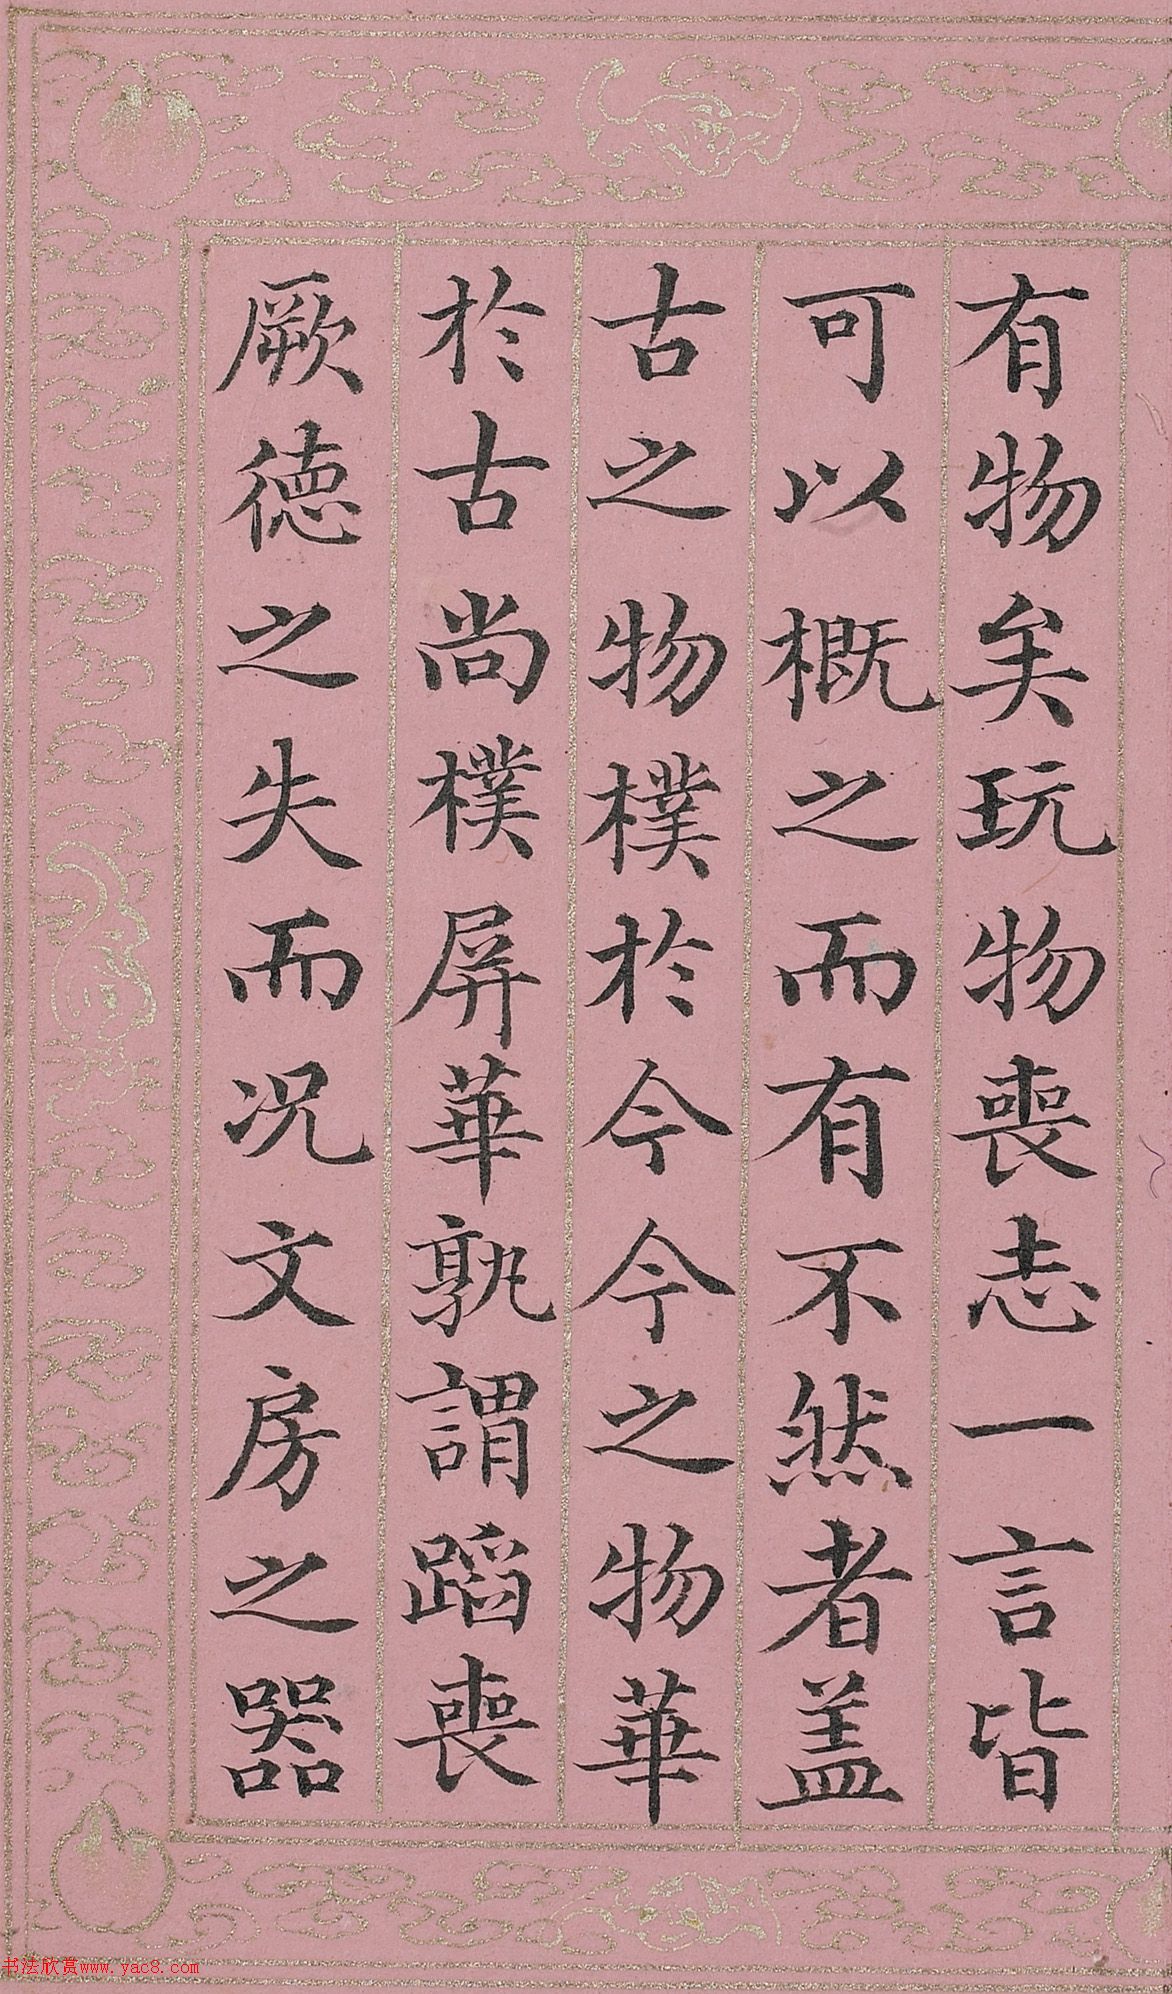 有物矣玩物喪志一言皆
可以概之而有不然者盖
古之物樸於今今之物華
於古尚樸屏華孰謂蹈喪
厥徳之失而况文房之器
书法欣赏www.yac8.com